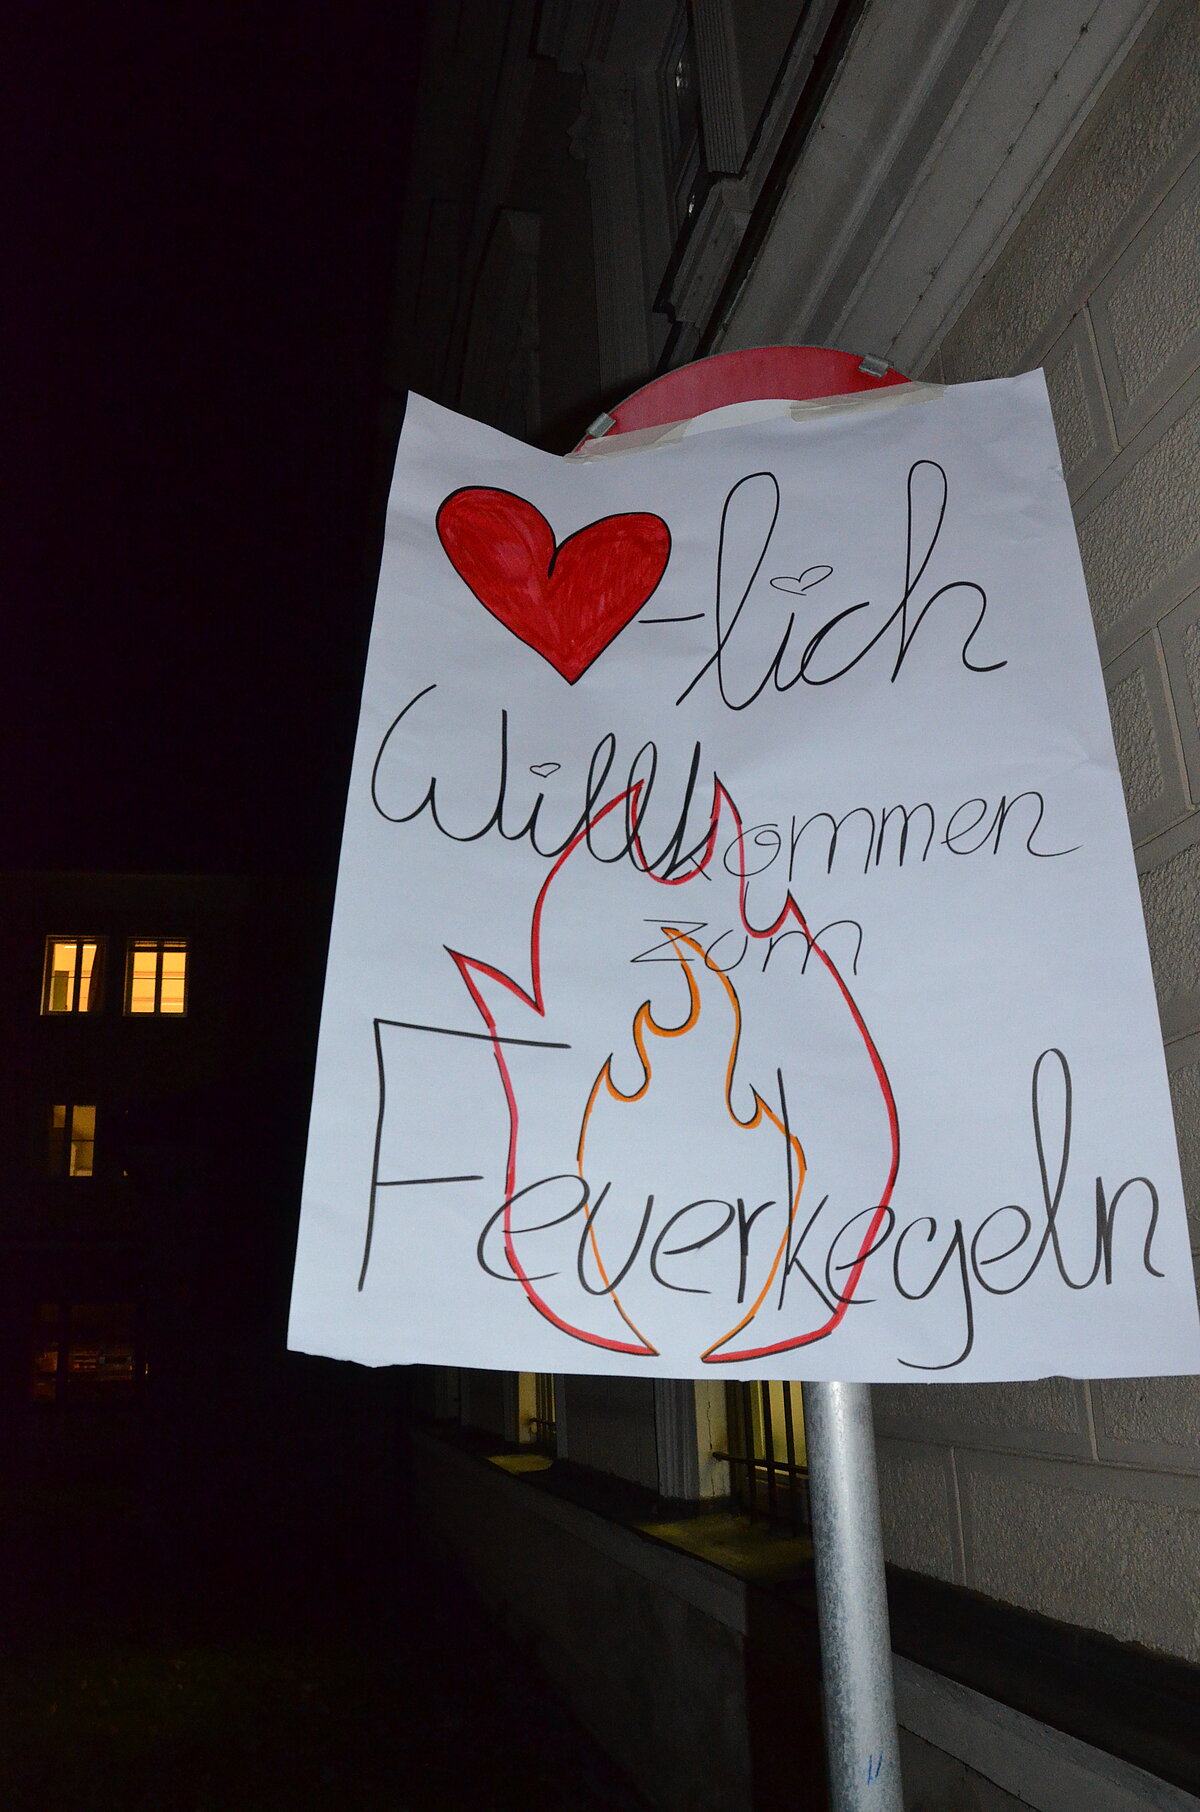 ❤-lich
Willkommen
zum
Feuerkegeln